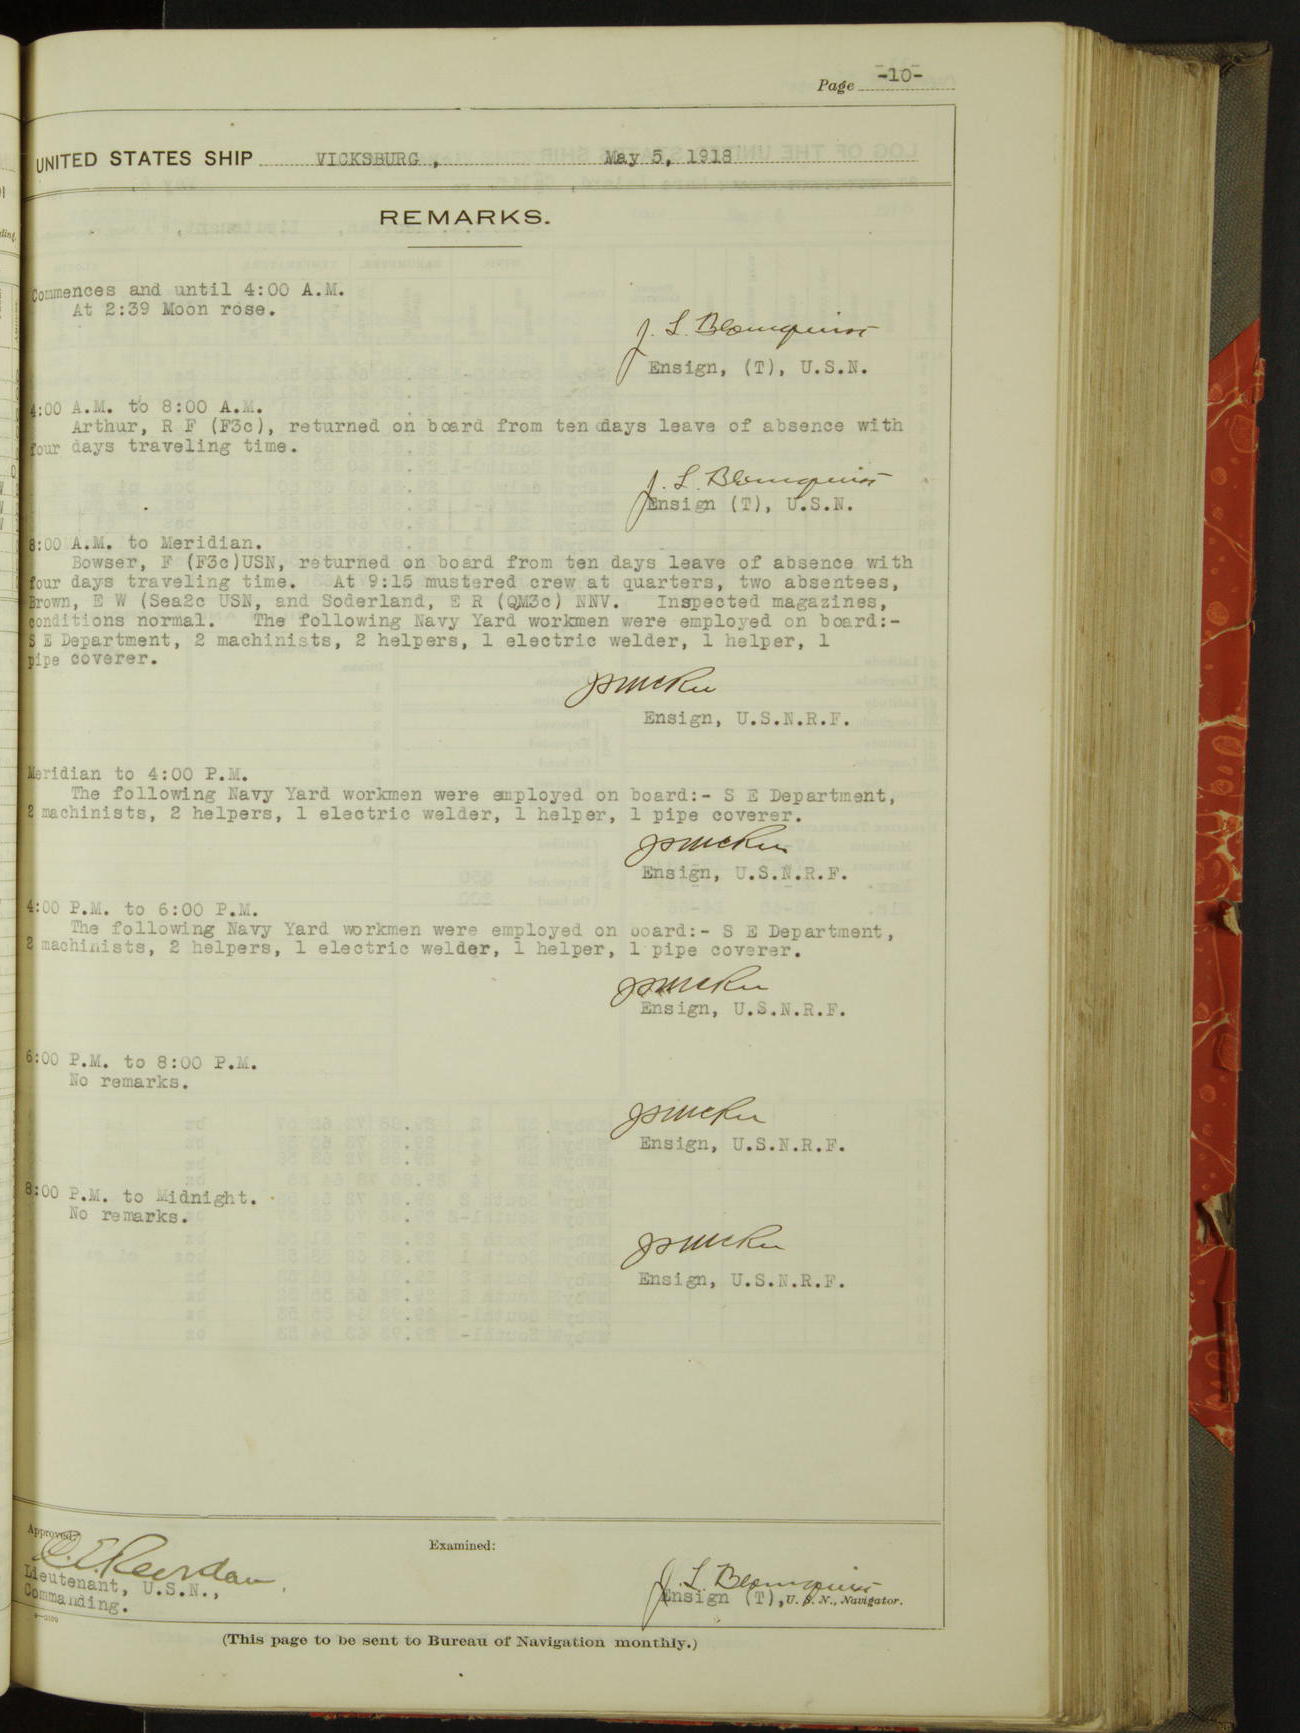 Page -10-
UNITED STATES SHIP VICKSBURG, May 5, 1918
REMARKS.
Commences and until 4:00 A.M.
At 2:39 Moon rose.
J. L. Blomquist
Ensign, (T), U.S.N.
4:00 A.M. to 8:00 A.M.
Arthur, R F (F3c), returned on board from ten days leave of absence with
four days traveling time.
J. L. Blomquist
Ensign (T), U.S.N.
8:00 A.M. to Meridian.
Bowser, F (F3c)USN, returned on board from ten days leave of absence with
four days traveling time. At 9:15 mustered crew at quarters, two absentees,
Brown, E W (Sea2c USN, and Soderland, E R (QM3c) NNV. Inspected magazines,
conditions normal. The following Navy Yard workmen were employed on board:-
S E Department, 2 machinists, 2 helpers, 1 electric welder, 1 helper, 1
pipe coverer.
Ensign, U.S.N.R.F.
Meridian to 4:00 P.M.
The following Navy Yard workmen were employed on board:- S E Department,
2 machinists, 2 helpers, 1 electric welder, 1 helper, 1 pipe coverer.
Ensign, U.S.N.R.F.
4:00 P.M. to 6:00 P.M.
The following Navy Yard workmen were employed on board:- S E Department,
2 machinists, 2 helpers, 1 electric welder, 1 helper, 1 pipe coverer.
Ensign, U.S.N.R.F.
6:00 P.M. to 8:00 P.M.
No remarks.
Ensign, U.S.N.R.F.
8:00 P.M. to Midnight.
No remarks.
Ensign, U.S.N.R.F.
Approved:
Examined:
Lieutenant, U.S.N.,
Commanding.
J. L. Blomquist
Ensign (T), U. S. N., Navigator.
(This page to be sent to Bureau of Navigation monthly.)